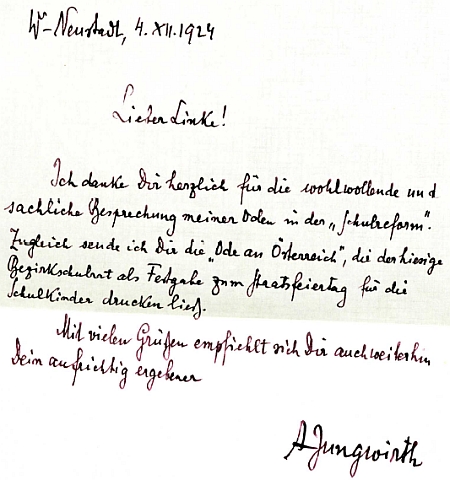 Wr-Neustadt, 4. XII. 1924
Lieber Linke!
Ich danke Dir herzlich für die wohlwollende und
sachliche Besprechung meiner Oden in der „Schulreform".
Zugleich sende ich Dir die „Ode an Österreich", die der hiesige
Bezirksschulrat als Festgabe zum Staatsfeiertag für die
Schulkinder drucken ließ.
Mit vielen Grüßen empfiehlt sich Dir auch weiterhin
Dein aufrichtig ergebener
A Jungwirth